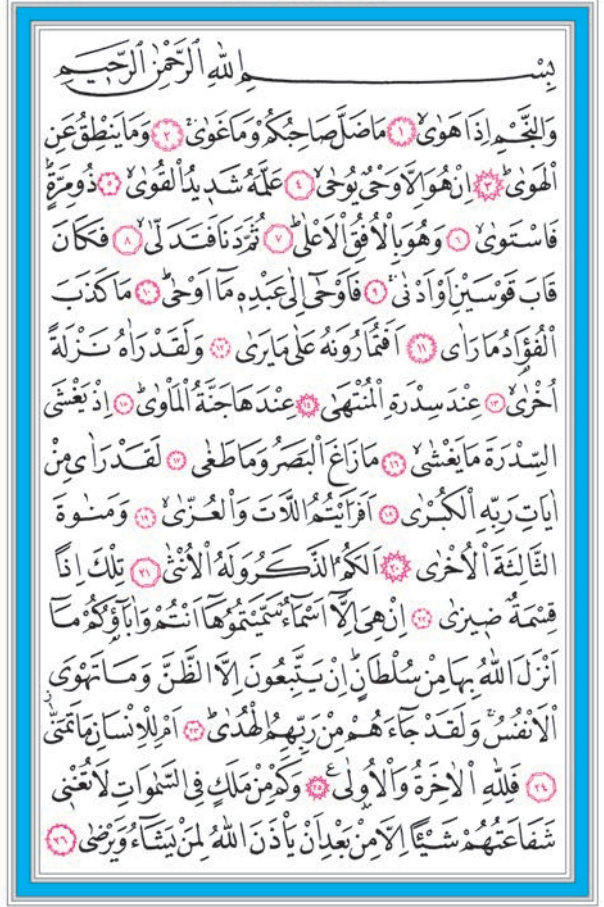 بِسْمِ اللّٰهِ الرَّحْمٰنِ الرَّحٖيمِ
وَالنَّجْمِ اِذَا هَوٰىۙ ﴿١﴾ مَا ضَلَّ صَاحِبُكُمْ وَمَا غَوٰىۚ ﴿٢﴾ وَمَا يَنْطِقُ عَنِ
الْهَوٰىؕ ﴿٣﴾ اِنْ هُوَ اِلَّا وَحْيٌ يُوحٰىۙ ﴿٤﴾ عَلَّمَهُ شَدِيدُ الْقُوٰىۙ ﴿٥﴾ ذُومِرَّةٍؕ
فَاسْتَوٰىۙ ﴿٦﴾ وَهُوَ بِالْاُفُقِ الْاَعْلٰىؕ ﴿٧﴾ ثُمَّ دَنَا فَتَدَلّٰىۙ ﴿٨﴾ فَكَانَ
قَابَ قَوْسَيْنِ اَوْ اَدْنٰىۚ ﴿٩﴾ فَاَوْحٰٓى اِلٰى عَبْدِهٖ مَٓا اَوْحٰىؕ ﴿١٠﴾ مَا كَذَبَ
الْفُؤٰادُ مَا رَاٰى ﴿١١﴾ اَفَتُمَارُونَهُ عَلٰى مَا يَرٰى ﴿١٢﴾ وَلَقَدْ رَاٰهُ نَزْلَةً
اُخْرٰىۙ ﴿١٣﴾ عِنْدَ سِدْرَةِ الْمُنْتَهٰى ﴿١٤﴾ عِنْدَهَا جَنَّةُ الْمَأْوٰىؕ ﴿١٥﴾ اِذْ يَغْشَى
السِّدْرَةَ مَا يَغْشٰىۙ ﴿١٦﴾ مَا زَاغَ الْبَصَرُ وَمَا طَغٰى ﴿١٧﴾ لَقَدْ رَاٰى مِنْ
اٰيَاتِ رَبِّهِ الْكُبْرٰى ﴿١٨﴾ اَفَرَاَيْتُمُ اللَّاتَ وَالْعُزّٰىۙ ﴿١٩﴾ وَمَنٰوةَ
الثَّالِثَةَ الْاُخْرٰى ﴿٢٠﴾ اَلَكُمُ الذَّكَرُ وَلَهُ الْاُنْثٰى ﴿٢١﴾ تِلْكَ اِذًا
قِسْمَةٌ ضِيزٰى ﴿٢٢﴾ اِنْ هِيَ اِلَّٓا اَسْمَٓاءٌ سَمَّيْتُمُوهَٓا اَنْتُمْ وَاٰبَٓاؤُكُمْ مَٓا
اَنْزَلَ اللّٰهُ بِهَا مِنْ سُلْطَانٍؕ اِنْ يَتَّبِعُونَ اِلَّا الظَّنَّ وَمَا تَهْوَى
الْاَنْفُسُۚ وَلَقَدْ جَٓاءَهُمْ مِنْ رَبِّهِمُ الْهُدٰىؕ ﴿٢٣﴾ اَمْ لِلْاِنْسَانِ مَا تَمَنّٰىؗ
﴿٢٤﴾ فَلِلّٰهِ الْاٰخِرَةُ وَالْاُو۫لٰىࣖ ﴿٢٥﴾ وَكَمْ مِنْ مَلَكٍ فِي السَّمٰوَاتِ لَا تُغْنٖي
شَفَاعَتُهُمْ شَيْـًٔا اِلَّا مِنْ بَعْدِ اَنْ يَأْذَنَ اللّٰهُ لِمَنْ يَشَٓاءُ وَيَرْضٰى ﴿٢٦﴾